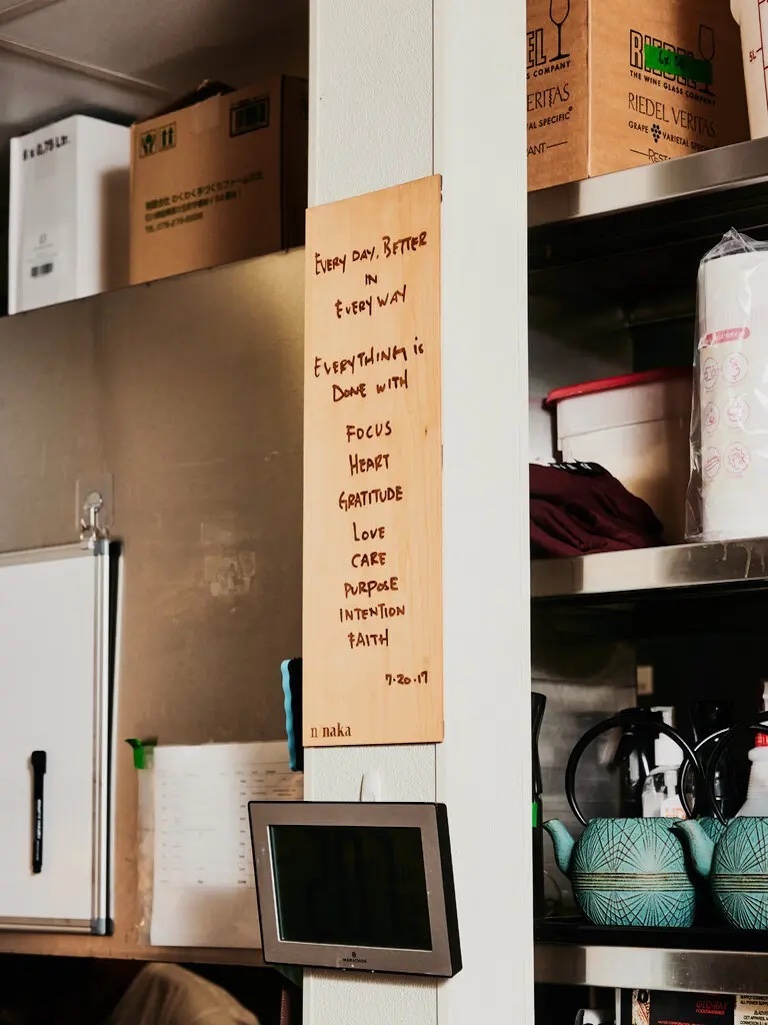 EVERY DAY, BETTER
IN
EVERY WAY
EVERYTHING is
DONE WITH
FOCUS
HEART
GRATITUDE
LOVE
CARE
PURPOSE
INTENTION
FAITH
7·20·17
n naka
RIEDEL
THE WINE GLASS COMPANY
RIEDEL VERITAS
GRAPE VARIETAL SPECIFIC
EL
S COMPANY
ERITAS
AL SPECIFIC
ANT
6 x 0,75 Ltr.
MARATHON
5L